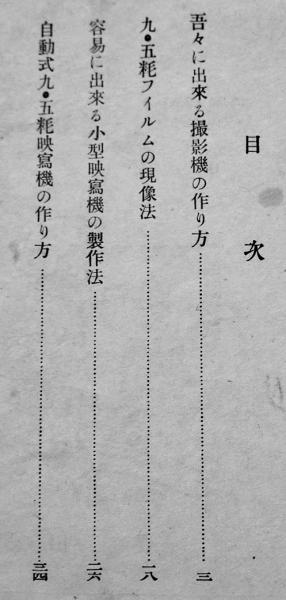 目次
吾々に出來る撮影機の作り方……三
九・五粍フィルムの現像法……一八
容易に出來る小型映寫機の製作法……二六
自動式九・五粍映寫機の作り方……三四